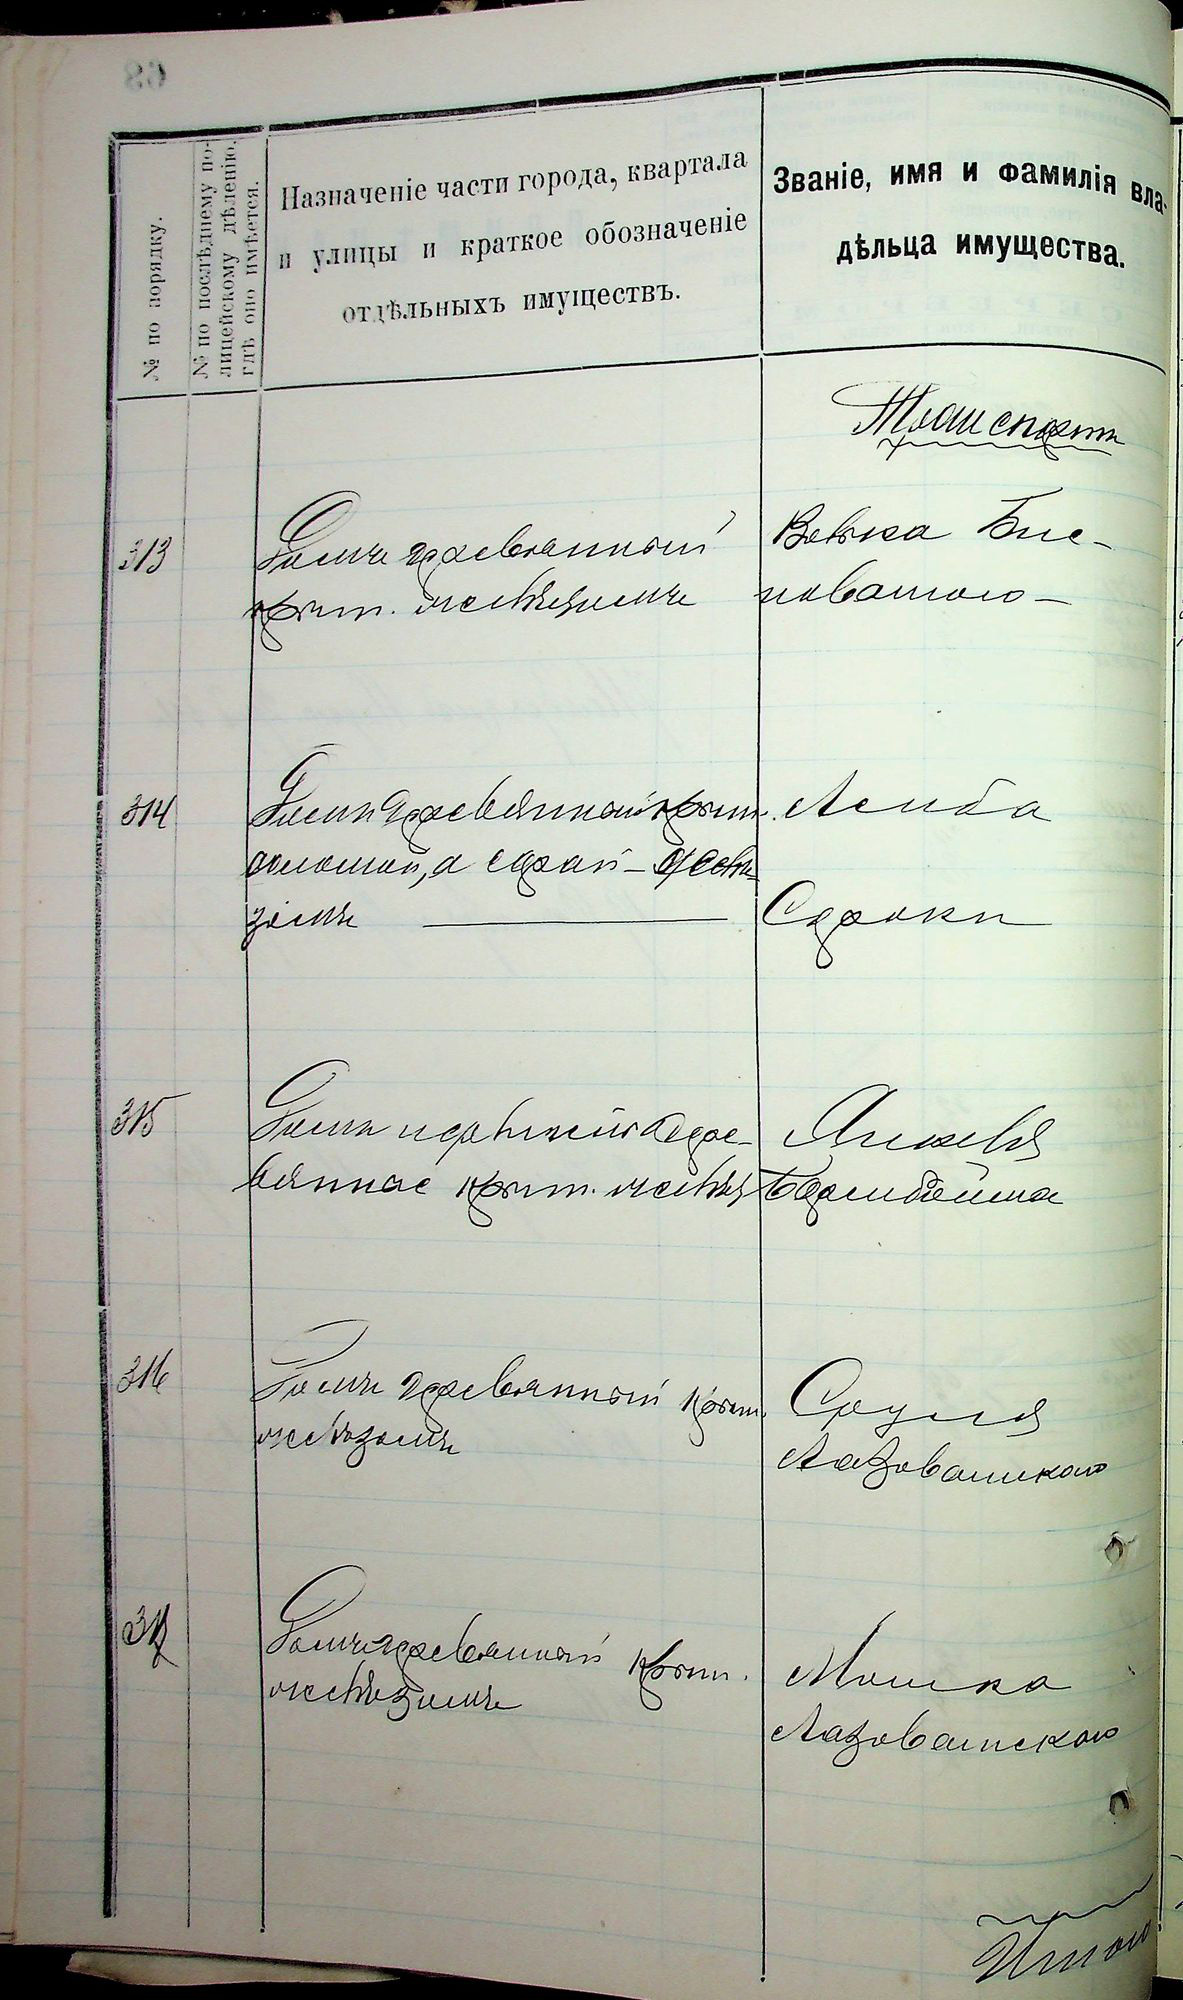 № по порядку.
№ по послѣднему по-
лицейскому дѣленію,
гдѣ оно имѣется.
Назначеніе части города, квартала
и улицы и краткое обозначеніе
отдѣльныхъ имуществъ.
Званіе, имя и фамилія вла-
дѣльца имущества.
Транспортъ
313
Домъ деревянный
крыт. желѣзомъ
Бис-
новатого
314
Домъ деревянный крыт.
соломой, а сарай - желѣ-
зомъ
Лейба
Сороки
315
Домъ и
вянное крыт. желѣз
Янкеля
316
Домъ деревянный крыт.
желѣзомъ
Сруля
Лазоватского
317
Домъ деревянный крыт.
желѣзомъ
Мошка
Лазоватского
Итого